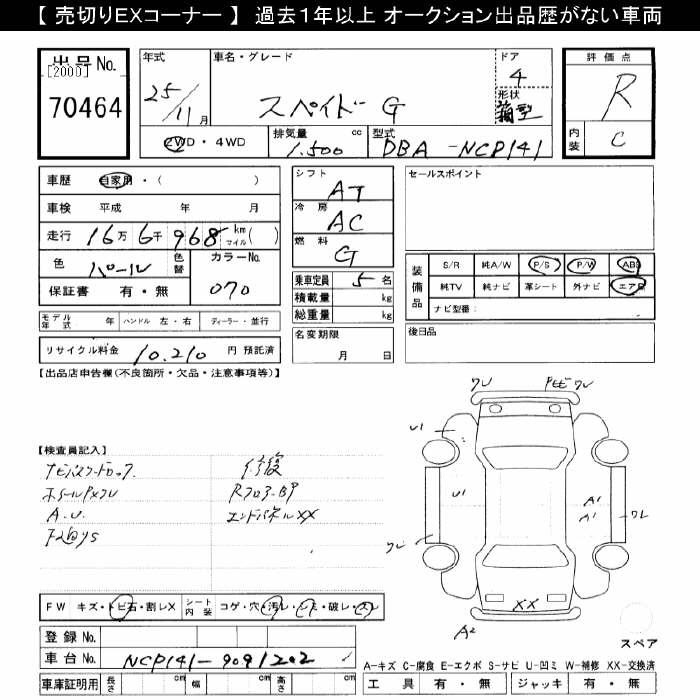 【 売切りEXコーナー 】 過去１年以上 オークション出品歴がない車両
出品No.
[2000]
70464
年式
25/11月
車名・グレード
スペイド G
ドア
4
形状
箱型
評価点
R
内装
C
2WD・4WD
排気量 cc
1.500
型式
DBA-NCP141
車歴 自家用・( )
車検 平成 年 月
走行 16万 6千 968 km マイル( )
色 パール 色替
カラーNo.
070
保証書 有・無
シフト
AT
冷房
AC
燃料
G
乗車定員 5 名
積載量 kg
総重量 kg
名変期限
月 日
セールスポイント
装備品
S/R 純A/W P/S P/W ABS
純TV 純ナビ 革シート 外ナビ エアB
ナビ型番:
後日品
モデル年式 年 ハンドル 左・右 ディーラー・並行
リサイクル料金 10.210 円 預託済
【出品店申告欄(不良箇所・欠品・注意事項等)】
【検査員記入】
ナビパスワードロック
ホイールキズワレ
A.U.
修復
Rフロア-BP
エンドパネルXX
ワレ
ワレ
U1
U1
A1
A1
ワレ
ワレ
XX
A2
FW キズ・トビ石・割レX
シート内装 コゲ・穴・汚レ・シミ・破レ・スレ
登録No.
車台No. NCP141-9091202
車庫証明用 長さ cm 幅 cm 高さ cm
スペア
A-キズ C-腐食 E-エクボ S-サビ U-凹ミ W-補修 XX-交換済
工具 有・無 ジャッキ 有・無